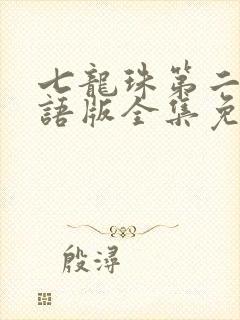 七龍珠第二
語版全集免
殷潯